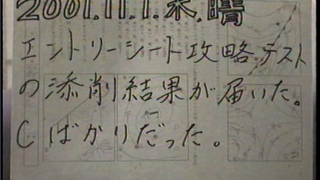 2001.11.1.木.晴
エントリーシート攻略テスト
の添削結果が届いた。
Cばかりだった。